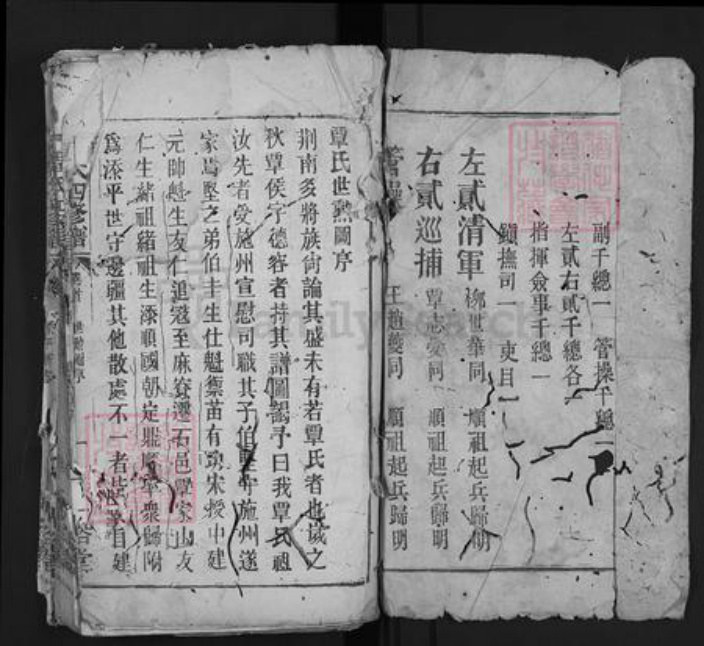 副千總一 管操千總一
左貳右貳千總各一
指揮僉事千總一
鎮撫司一 吏目一
左貳清軍 柳世華同 順祖起兵歸明
右貳巡捕 覃志愛同 順祖起兵歸明
管操 王 同 順祖起兵歸明
覃氏世勲圖序
荆南多將族尚論其盛未有若覃氏者也歲之
秋覃侯字德容者持其譜圖謁予曰我覃氏祖
汝先者爱施州宣慰司職其子伯堅守施州遂
家焉堅之弟伯圭生仕魁禦苗有功宋授中建
元帥魁生友仁追寇至麻寮遷石邑覃家山友
仁生緒祖緒祖生添順國朝定鼎順率衆歸附
爲添平世守邊疆其他散處不一者 自建
四修譜
FamilySearch